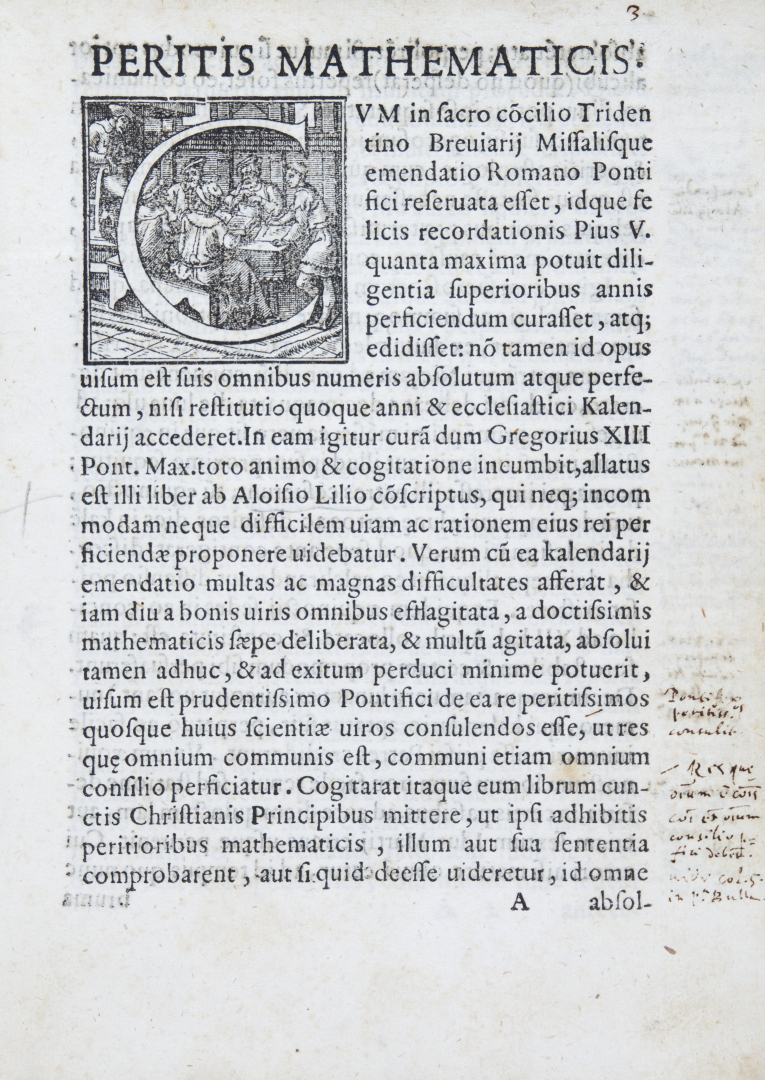 3
PERITIS MATHEMATICIS.
CVM in ſacro cōcilio Triden
tino Breuiarij Miſſaliſque
emendatio Romano Ponti
fici reſeruata eſſet, idque fe
licis recordationis Pius V.
quanta maxima potuit dili-
gentia ſuperioribus annis
perficiendum curaſſet, atq;
edidiſſet: nō tamen id opus
uiſum eſt ſuis omnibus numeris abſolutum atque perfe-
ctum, niſi reſtitutio quoque anni & eccleſiaſtici Kalen-
darij accederet. In eam igitur curā dum Gregorius XIII
Pont. Max. toto animo & cogitatione incumbit, allatus
eſt illi liber ab Aloiſio Lilio cōſcriptus, qui neq; incom
modam neque difficilem uiam ac rationem eius rei per
ficiendæ proponere uidebatur. Verum cū ea kalendarij
emendatio multas ac magnas difficultates afferat, &
iam diu a bonis uiris omnibus efflagitata, a doctiſsimis
mathematicis ſæpe deliberata, & multū agitata, abſolui
tamen adhuc, & ad exitum perduci minime potuerit,
uiſum eſt prudentiſsimo Pontifici de ea re peritiſsimos
quoſque huius ſcientiæ uiros conſulendos eſſe, ut res
quę omnium communis eſt, communi etiam omnium
conſilio perficiatur. Cogitarat itaque eum librum cun-
ctis Chriſtianis Principibus mittere, ut ipſi adhibitis
peritioribus mathematicis, illum aut ſua ſententia
comprobarent, aut ſi quid deeſſe uideretur, id omne
A abſol-
peritiss.
consulit
Res que
consilio